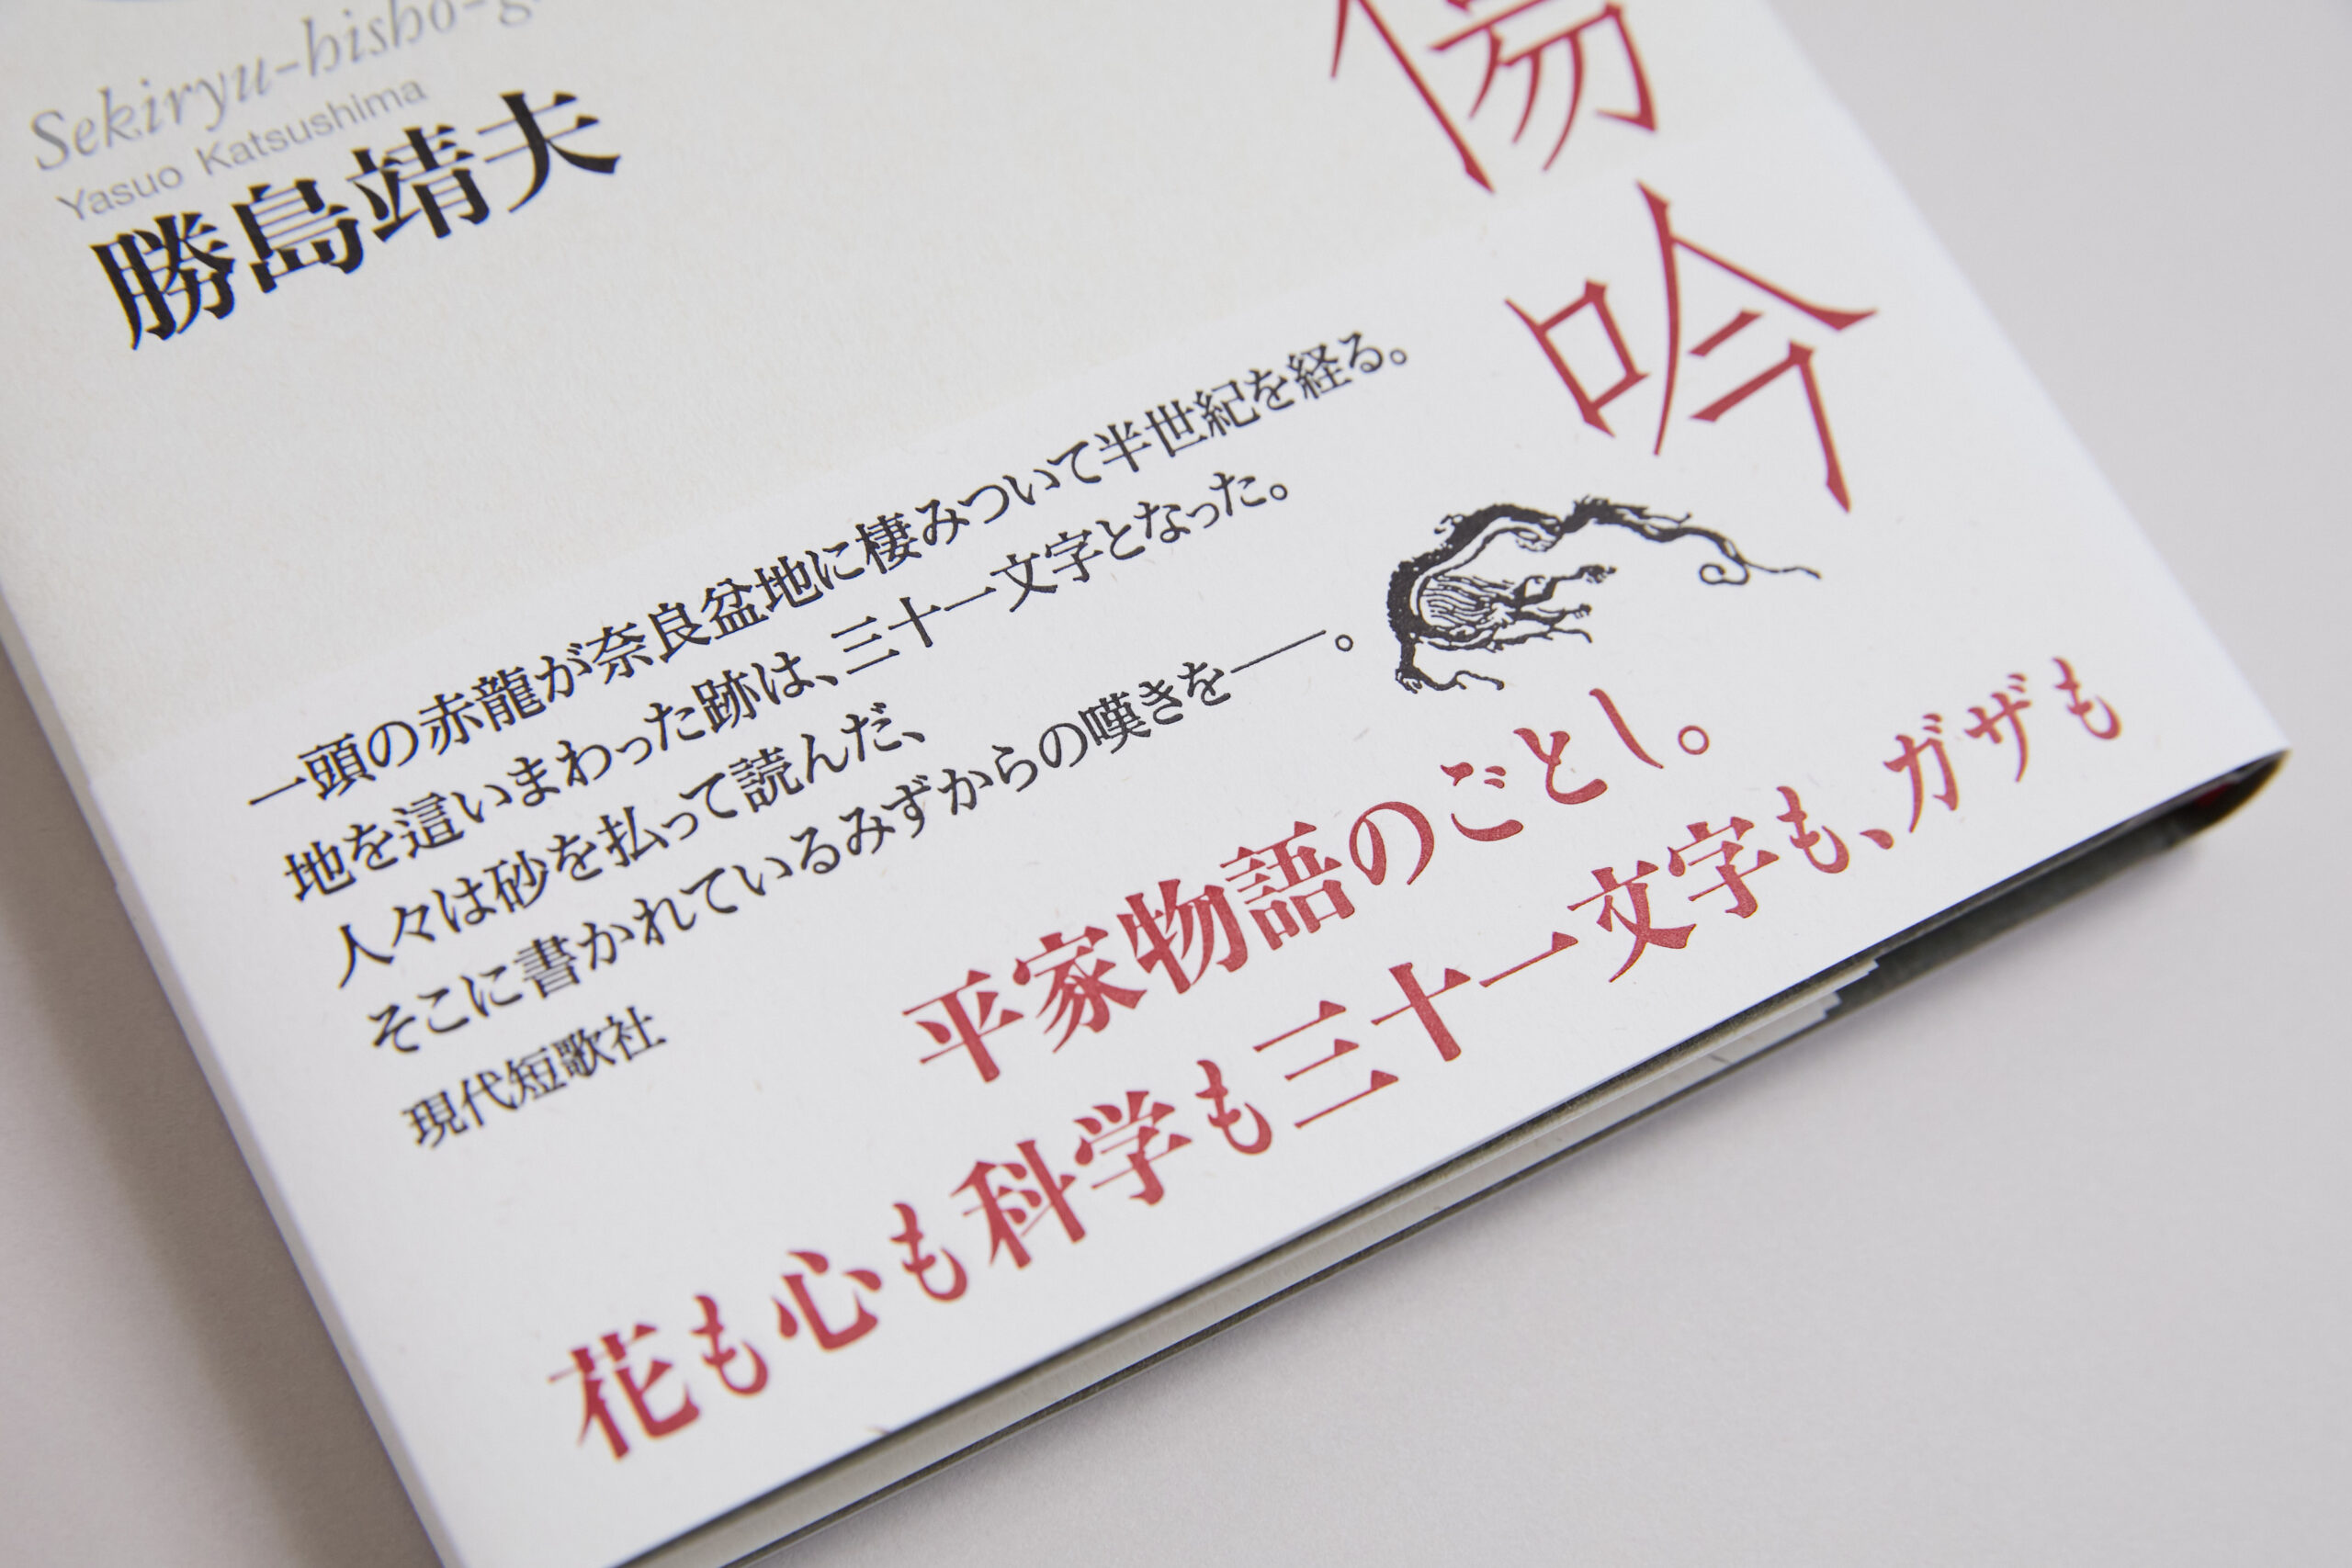 Sekiryu-bisho-g
Yasuo Katsushima
勝島靖夫
傷吟
一頭の赤龍が奈良盆地に棲みついて半世紀を経る。
地を這いまわった跡は、三十一文字となった。
人々は砂を払って読んだ、
そこに書かれているみずからの嘆きを──。
現代短歌社
平家物語のごとし。
花も心も科学も三十一文字も、ガザも